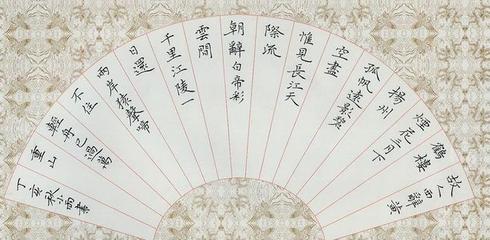 故人西辭黃
鶴樓
煙花三月下
揚州
孤帆遠影碧
空盡
惟見長江天
際流
朝辭白帝彩
雲間
千里江陵一
日還
兩岸猿聲啼
不住
輕舟已過萬
重山
丁亥秋小雨書